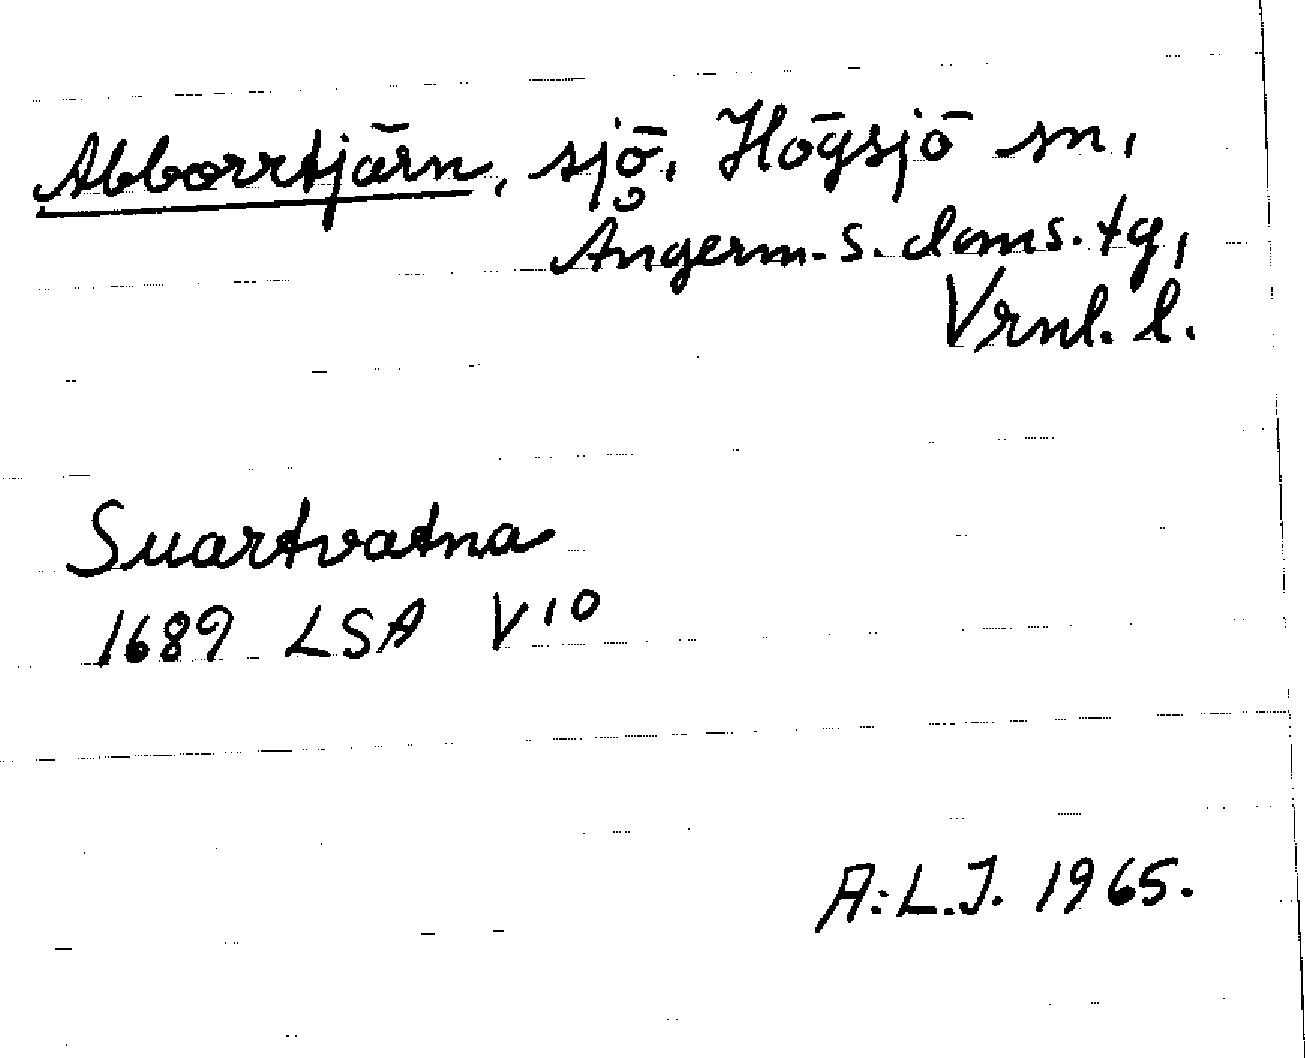 Abborrtjärn, sjö, Högsjö sn,
Ångerm. s. doms. tg,
Vrnl. l.
Suartvatna
1689 LSA V10
A:L.J. 1965.